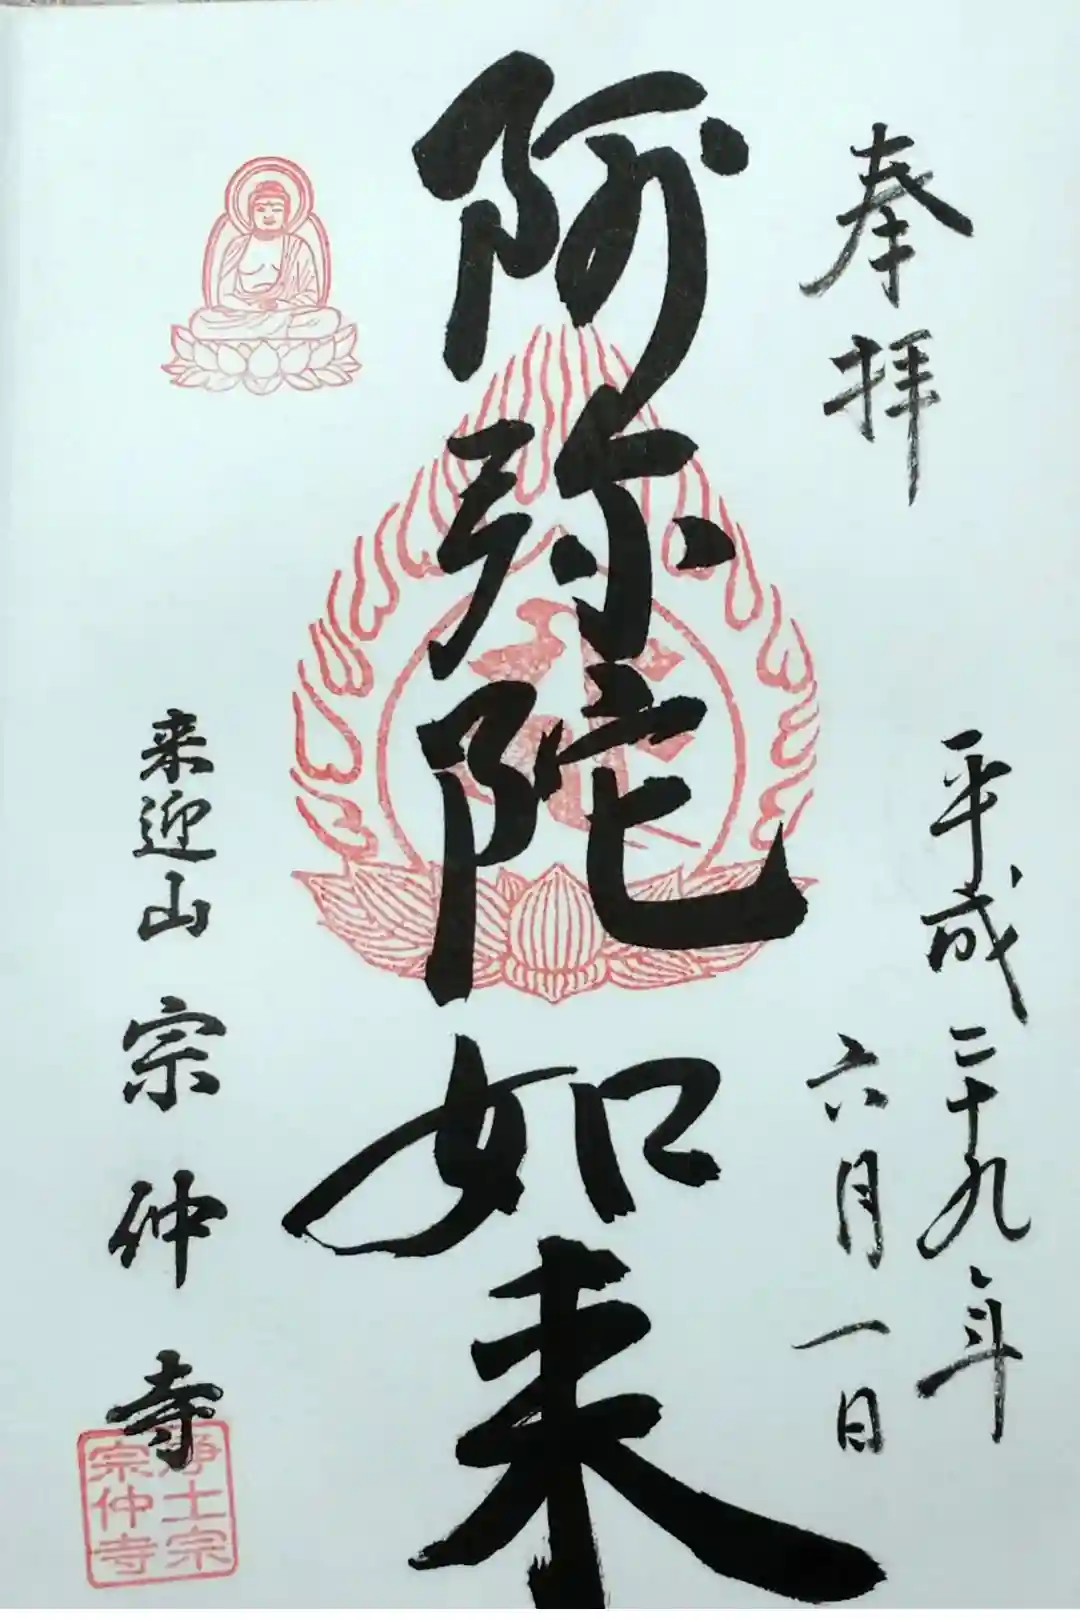 奉拝
平成二十九年
六月一日
阿弥陀如来
来迎山宗仲寺
浄土宗
宗仲寺